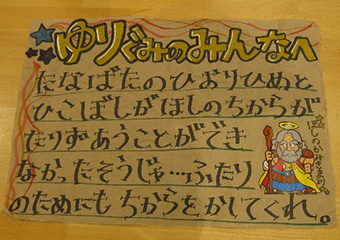 ゆりぐみのみんなへ
たなばたのひおりひめと
ひこぼしがほしのちからが
たりずあうことができ
なかったそうじゃ…ふたり
のためにもちからをかしてくれ。